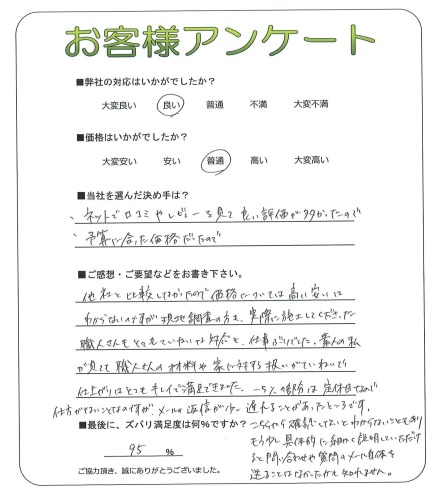 お客様アンケート
■弊社の対応はいかがでしたか?
大変良い 良い 普通 不満 大変不満
■価格はいかがでしたか?
大変安い 安い 普通 高い 大変高い
■当社を選んだ決め手は?
、ネットで口コミやレビューを見て良い評価が多かったので
、予算に合った価格だったので
■ご感想・ご要望などをお書き下さい。
他社と比較してなかったので価格については高い安いは
わからないですが現地調査の方も、実際に施工してくださった
職人さんもとてもていねいな対応と、仕事ぶりでした。素人の私
が見ても職人さんの材料や家に対する扱いがていねいで
仕上がりはとてもキレイで満足できました。-5%の部分は定休日なので
仕方がないことなのですが、メールの返信が少し遅れることがあったところです。
■最後に、ズバリ満足度は何%ですか?
95 %
こちらから確認しないとわからないこともあり
もう少し具体的に細かく説明していただけ
ると問い合わせや質問のメール自体を
送ることはなかったかも知れません。
ご協力頂き、誠にありがとうございました。